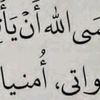 ـسَى اللّٰه أَنْ يَأْتـ
ـواتي، أُمنيا